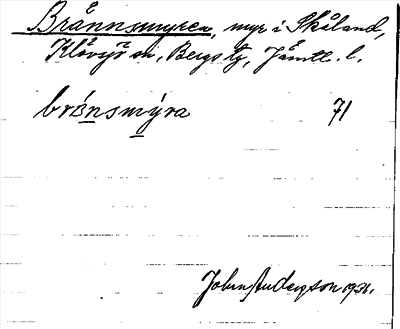 Brännsmyren, myr i Skåland,
Klövsjö sn, Bergs tg, Jämtl. l.
brä́nsmýra 71
John Anderzon 1931.